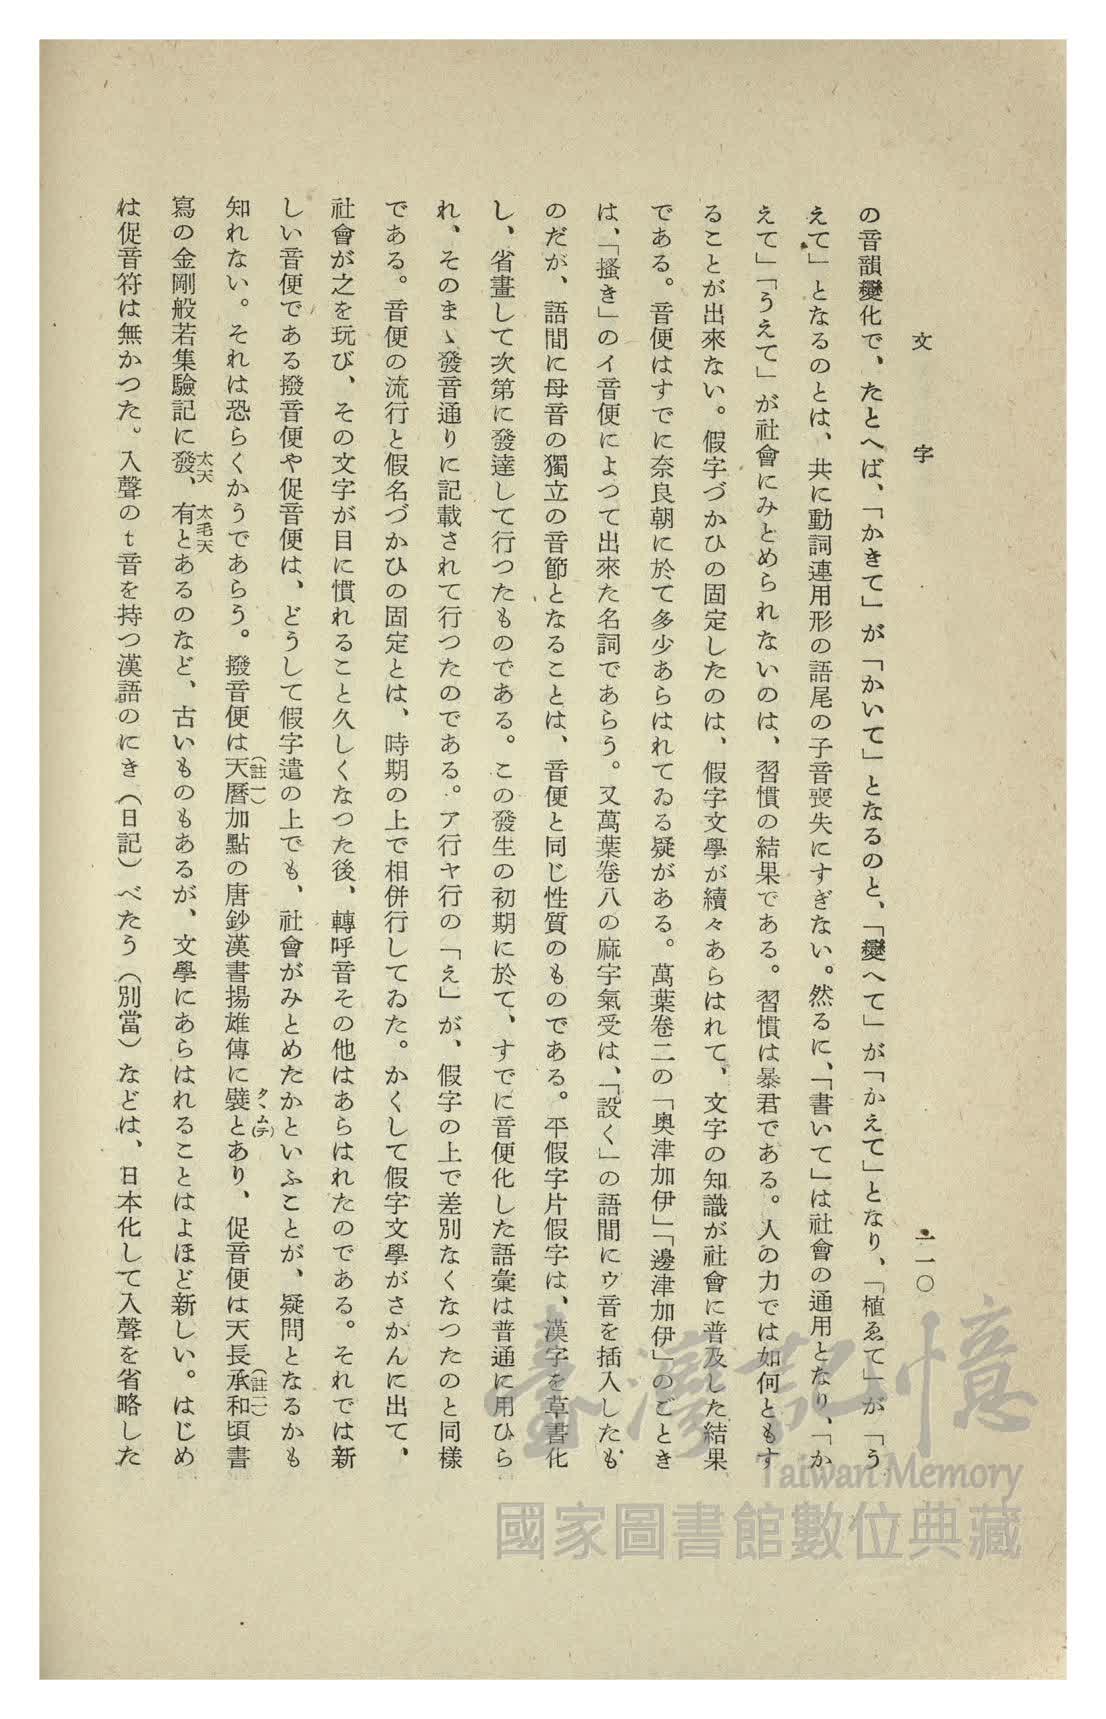 文字
一一〇
の音韻變化で、たとへば、「かきて」が「かいて」となるのと、「變へて」が「かえて」となり、「植ゑて」が「う
えて」となるのとは、共に動詞連用形の語尾の子音喪失にすぎない。然るに、「書いて」は社會の通用となり、「か
えて」「うえて」が社會にみとめられないのは、習慣の結果である。習慣は暴君である。人の力では如何ともす
ることが出來ない。假字づかひの固定したのは、假字文學が續々あらはれて、文字の知識が社會に普及した結果
である。音便はすでに奈良朝に於て多少あらはれてゐる疑がある。萬葉卷二の「奧津加伊」「邊津加伊」のごとき
は、「搔き」のイ音便によつて出來た名詞であらう。又萬葉卷八の麻宇氣受は、「設く」の語間にゥ音を插入したも
のだが、語間に母音の獨立の音節となることは、音便と同じ性質のものである。平假字片假字は、漢字を草書化
し、省畫して次第に發達して行つたものである。この發生の初期に於て、すでに音便化した語彙は普通に用ひら
れ、そのまゝ發音通りに記載されて行つたのである。ア行ヤ行の「え」が、假字の上で差別なくなつたのと同樣
である。音便の流行と假名づかひの固定とは、時期の上で相併行してゐた。かくして假字文學がさかんに出て、
社會が之を玩び、その文字が目に慣れること久しくなつた後、轉呼音その他はあらはれたのである。それでは新
しい音便である撥音便や促音便は、どうして假字遣の上でも、社會がみとめたかといふことが、疑問となるかも
知れない。それは恐らくかうであらう。撥音便は天曆(註一)加點の唐鈔漢書揚雄傳に襞タヽム(テ)とあり、促音便は天長承和(註二)頃書
寫の金剛般若集驗記に發太天、有太毛天とあるのなど、古いものもあるが、文學にあらはれることはよほど新しい。はじめ
は促音符は無かつた。入聲のt音を持つ漢語のにき（日記）べたう（別當）などは、日本化して入聲を省略した
臺灣記憶
Taiwan Memory
國家圖書館數位典藏